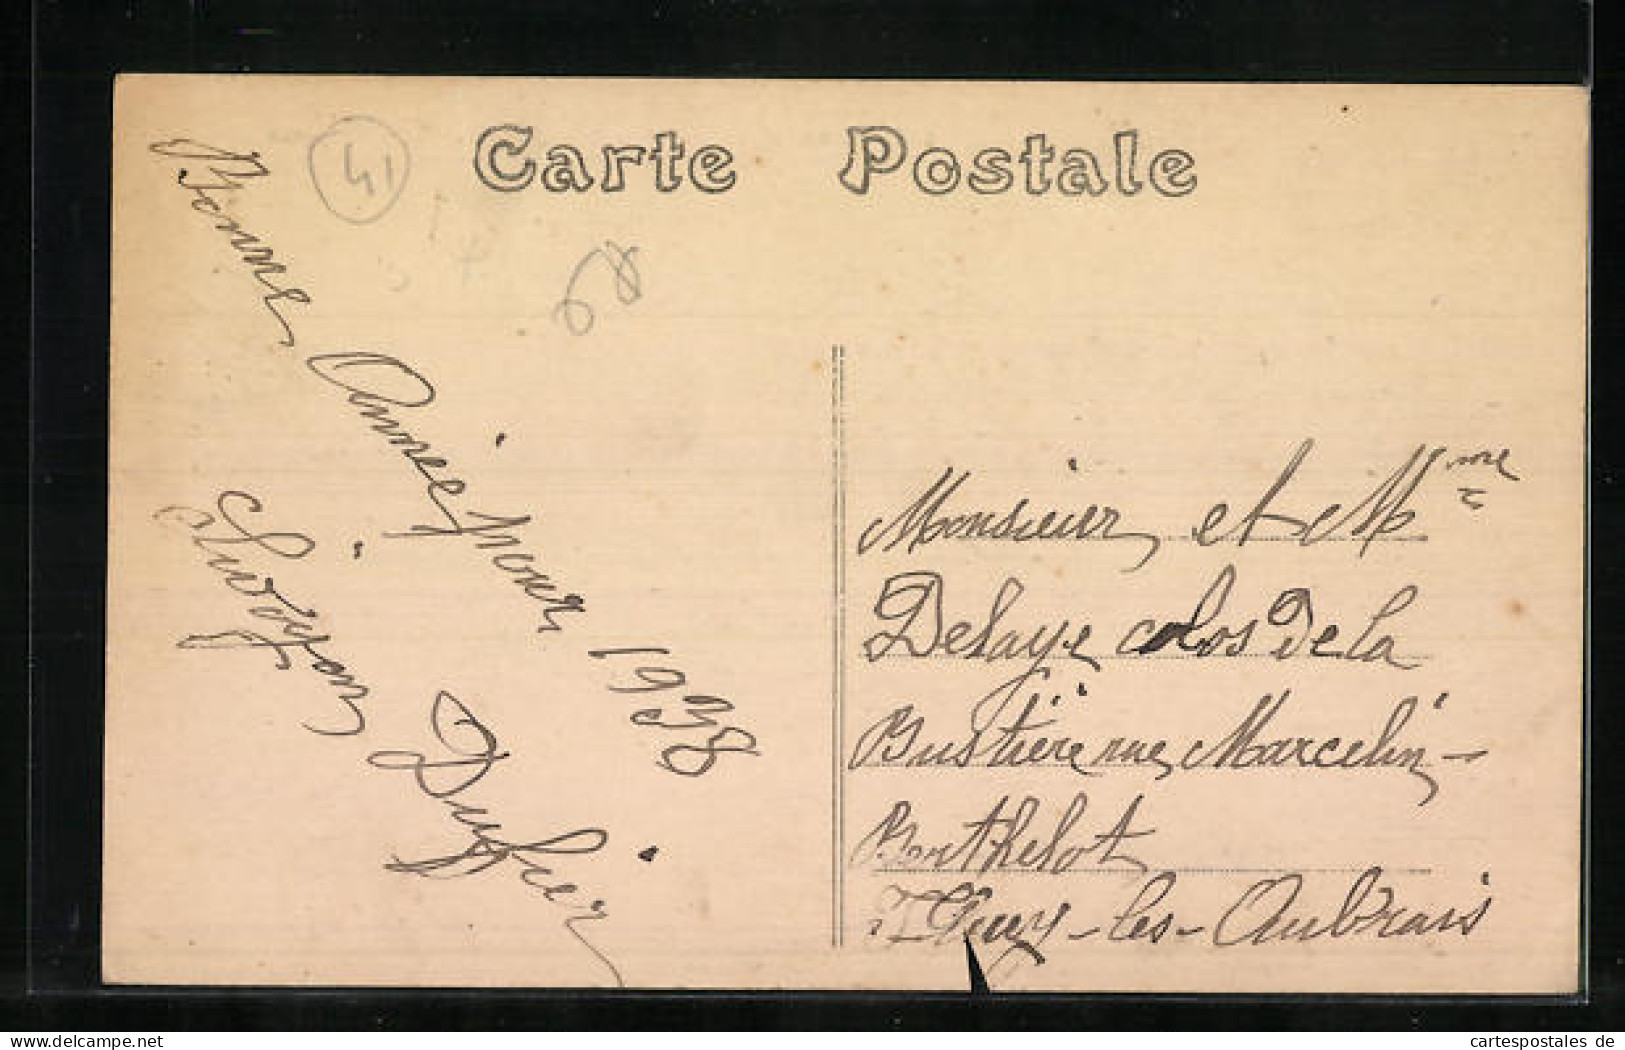 Carte Postale
41
Bonne Année pour 1938
Dupier
Monsieur et Mme
Delaye colos De la
Bustière rue Marcelin-
Berthelot
Fleury-les-Aubrais
cartespostales de